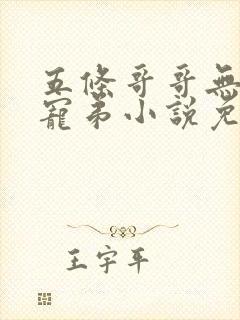 五條哥哥無
寵弟小說免
王宇平